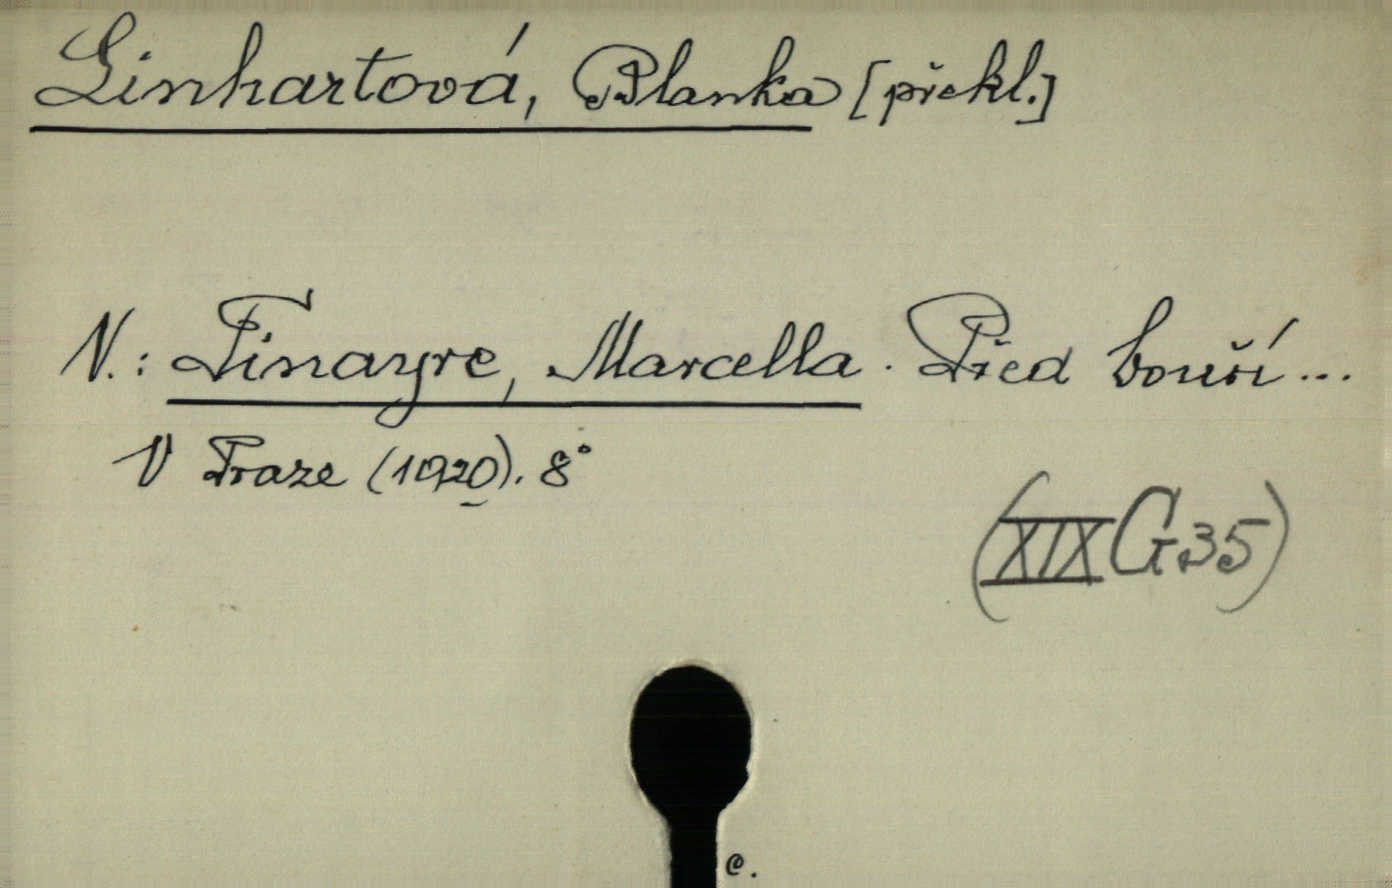 Linhartová, Blanka [překl.]
V.: Tinayre, Marcella. Před bouří...
V Praze (1920). 8°
(XIX G 35)
e.